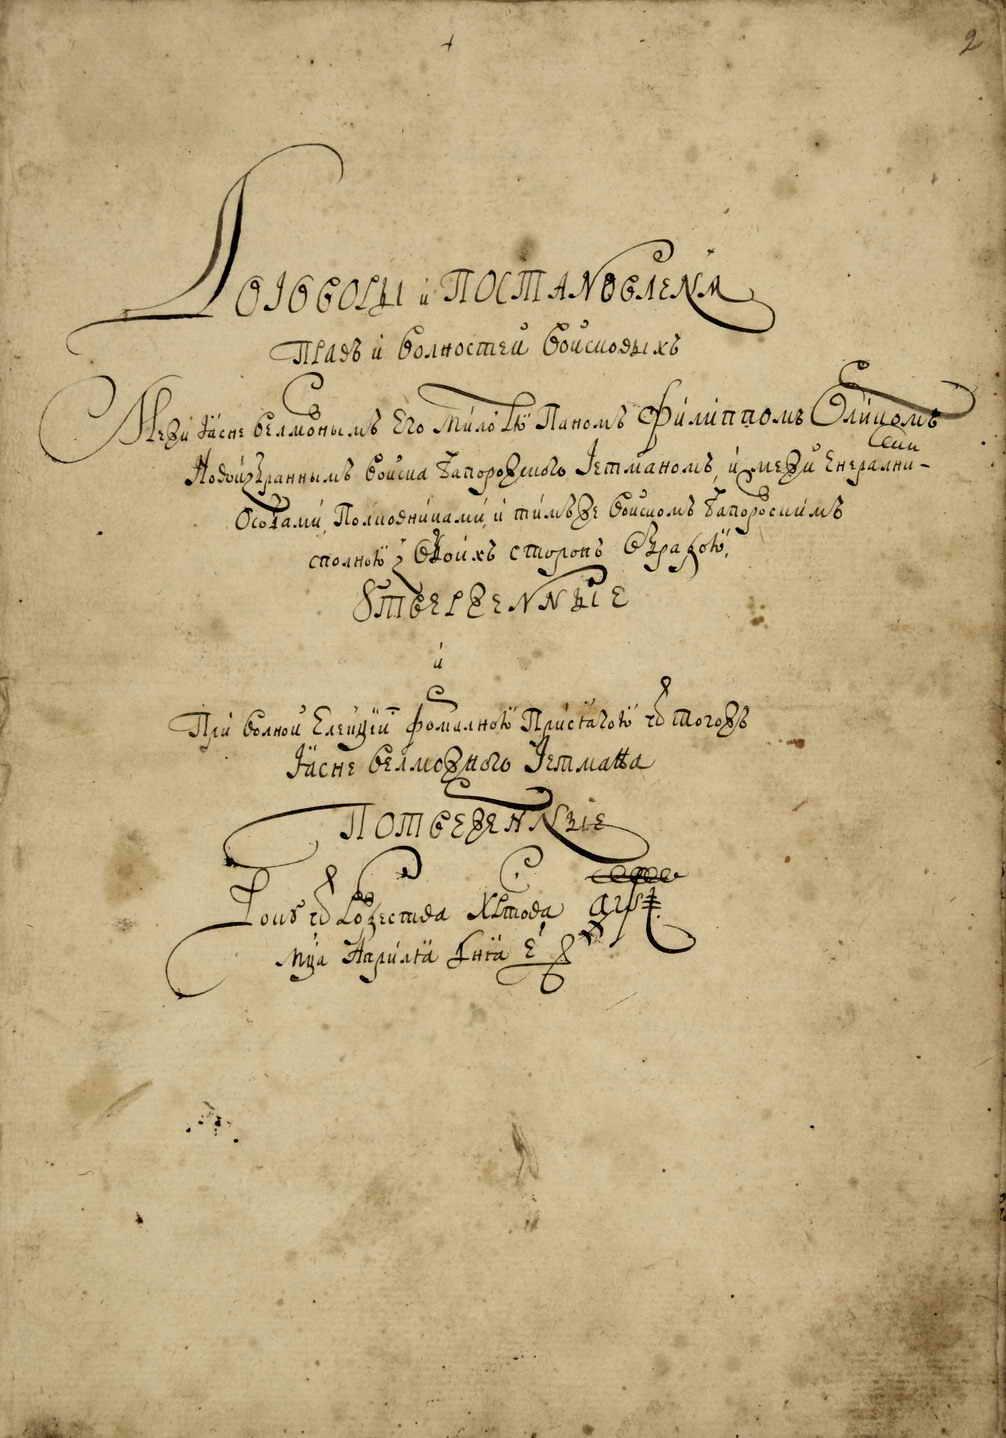 2
Договоры и Постановленѧ
Правъ и волностей войсковыхъ
Межи Ясне велможнымъ Его милостю Паномъ Филиппомъ Орликомъ
Новоизбраннымъ войска Запорожского Гетманомъ, и межи Енералними
Особами, Полковниками, и тимъже войскомъ Запорозскимъ
сполною з обоихъ сторонъ обрадою,
Утверженные
и
При волной Елекции формалною Присягою ѿ тогожъ
Ясне велможного Гетмана
Потверженные
Року ѿ Рожества Христова ҂аѱі
мца Априля дня е҃